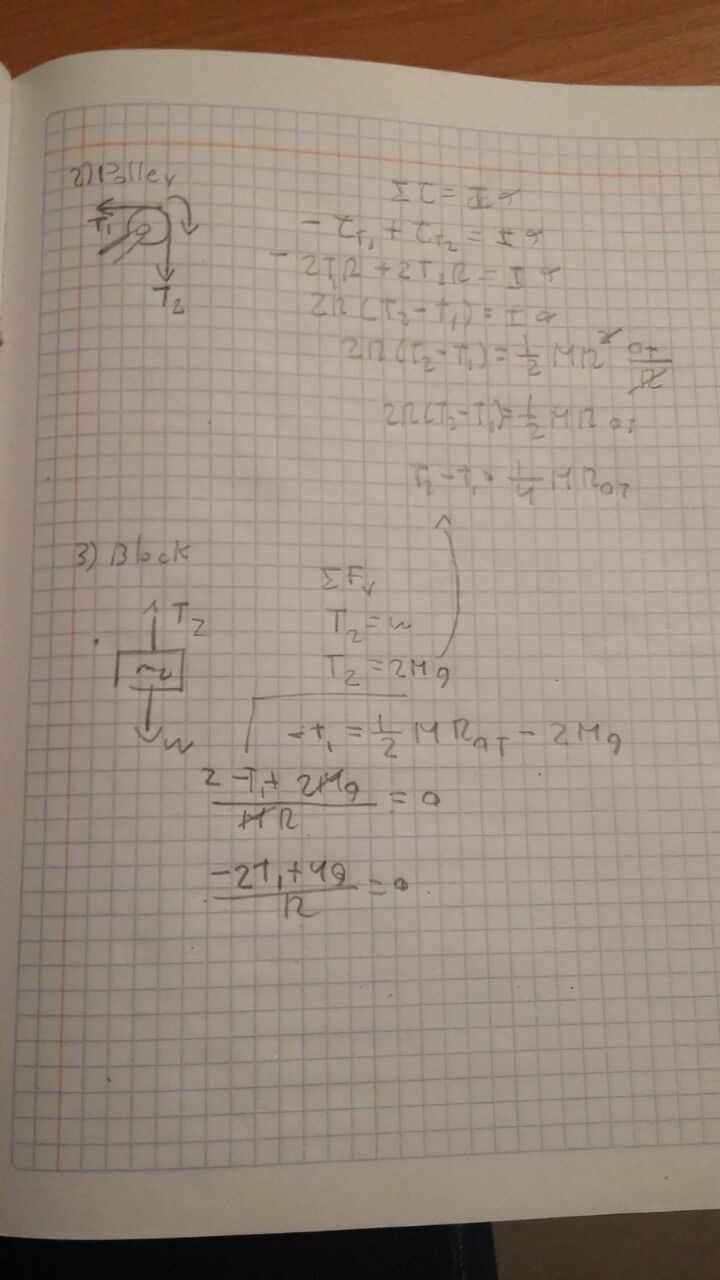 2) Polley
T₁
T₂
Στ = Iα
- τT₁ + τT₂ = Iα
- 2T₁R + 2T₂R = Iα
2R (T₂ - T₁) = Iα
2R (T₂ - T₁) = 1/2 MR² aT/R
2R(T₂ - T₁) = 1/2 MR aT
T₂ - T₁ = 1/4 MR aT
3) Block
T₂
m₂
w
ΣFy
T₂ = w
T₂ = 2Mg
-T₁ = 1/2 MR aT - 2Mg
2 -T₁ + 2Mg / MR = a
-2T₁ + 4g / R = a